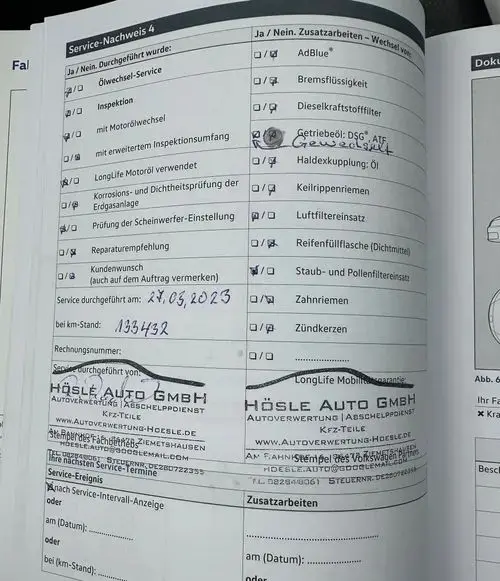 Service-Nachweis 4
Ja / Nein. Durchgeführt wurde:
Ölwechsel-Service
Inspektion
mit Motorölwechsel
mit erweitertem Inspektionsumfang
LongLife Motoröl verwendet
Korrosions- und Dichtheitsprüfung der
Erdgasanlage
Prüfung der Scheinwerfer-Einstellung
Reparaturempfehlung
Kundenwunsch
(auch auf dem Auftrag vermerken)
Service durchgeführt am: 27.03.2023
bei km-Stand: 133432
Rechnungsnummer:
Service durchgeführt von:
HÖSLE AUTO GMBH
AUTOVERWERTUNG | ABSCHLEPPDIENST
KFZ-TEILE
WWW.AUTOVERWERTUNG-HOESLE.DE
ZIEMETSHAUSEN
Stempel des Fachbetriebs
HOESLE.AUTO@GOOGLEMAIL.COM
Ihre nächsten Service-Termine
Service-Ereignis
nach Service-Intervall-Anzeige
oder
am (Datum):
oder
bei (km-Stand):
Ja / Nein. Zusatzarbeiten – Wechsel von:
AdBlue®
Bremsflüssigkeit
Dieselkraftstofffilter
Getriebeöl: DSG®, ATF
Gewechselt
Haldexkupplung: Öl
Keilrippenriemen
Luftfiltereinsatz
Reifenfüllflasche (Dichtmittel)
Staub- und Pollenfiltereinsatz
Zahnriemen
Zündkerzen
LongLife Mobilitätsgarantie:
HÖSLE AUTO GMBH
AUTOVERWERTUNG | ABSCHLEPPDIENST
KFZ-TEILE
WWW.AUTOVERWERTUNG-HOESLE.DE
ZIEMETSHAUSEN
Stempel des Volkswagen Partners
HOESLE.AUTO@GOOGLEMAIL.COM
Zusatzarbeiten
am (Datum):
oder
Doku
Abb. 6
Ihr Fa
Besch